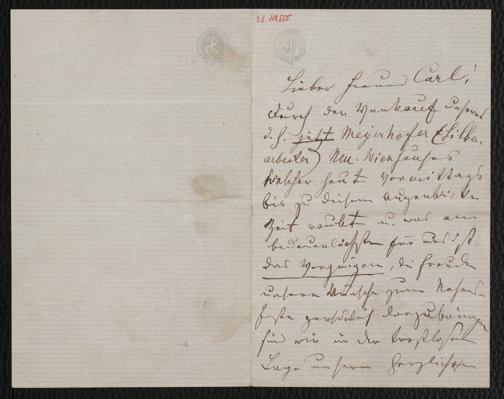 Lieber Freund Carl!
Durch den Verkauf unseres
d. h. jetzt Meyerhofer (Silber
arbeiter) Neu-Wienhauses
welcher heut Vormittags
bis zu diesem Augenblick
Zeit raubte u. was am
bedauerlichsten für uns ist
das Vergnügen, die Freude
unsere Wünsche zum Namens
feste persönlich darzubringen
sind wir in der trostlosen
Lage unsern herzlichsten